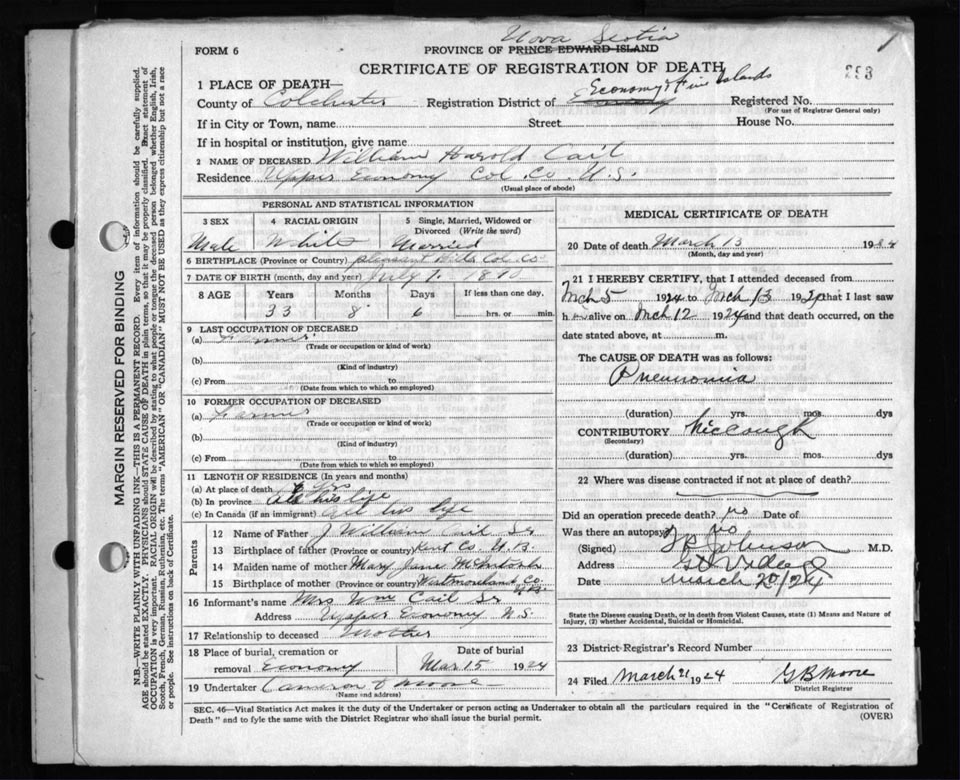 Nova Scotia
FORM 6
PROVINCE OF PRINCE EDWARD ISLAND
CERTIFICATE OF REGISTRATION OF DEATH
253
1 PLACE OF DEATH—
Economy & Five Islands
County of Colchester Registration District of Economy Registered No.
(For use of Registrar General only)
If in City or Town, name Street House No.
If in hospital or institution, give name
2 NAME OF DECEASED William Harold Cail
Residence Upper Economy Col. Co. N.S.
(Usual place of abode)
PERSONAL AND STATISTICAL INFORMATION
3 SEX 4 RACIAL ORIGIN 5 Single, Married, Widowed or Divorced (Write the word)
Male White Married
6 BIRTHPLACE (Province or Country) Pleasant Hills Col. Co.
7 DATE OF BIRTH (month, day and year) July 7. 1890
8 AGE Years Months Days If less than one day,
33 8 6 hrs. or min.
9 LAST OCCUPATION OF DECEASED
(a) Farmer
(Trade or occupation or kind of work)
(b)
(Kind of industry)
(c) From to
(Date from which to which so employed)
10 FORMER OCCUPATION OF DECEASED
(a) Farmer
(Trade or occupation or kind of work)
(b)
(Kind of industry)
(c) From to
(Date from which to which so employed)
11 LENGTH OF RESIDENCE (In years and months)
(a) At place of death
(b) In province All his life
(c) In Canada (if an immigrant) All his life
Parents
12 Name of Father J. William Cail Sr
13 Birthplace of father (Province or country) Kent Co. N.B.
14 Maiden name of mother Mary Jane McIntosh
15 Birthplace of mother (Province or country) Westmoreland Co. N.B.
16 Informant's name Mrs Wm Cail Sr
Address Upper Economy N.S.
17 Relationship to deceased Mother
18 Place of burial, cremation or removal Economy
Date of burial
Mar 15 1924
19 Undertaker Cameron & Moore
(Name and address)
MEDICAL CERTIFICATE OF DEATH
20 Date of death March 13 1924
(Month, day and year)
21 I HEREBY CERTIFY, that I attended deceased from
Mch 5 1924 to Mch 13 1924 that I last saw
h im alive on Mch 12 1924 and that death occurred, on the
date stated above, at m.
The CAUSE OF DEATH was as follows:
Pneumonia
(duration) yrs. mos. dys
CONTRIBUTORY Hiccough
(Secondary)
(duration) yrs. mos. dys
22 Where was disease contracted if not at place of death?
Did an operation precede death? no Date of
Was there an autopsy? no
(Signed) Johnson M.D.
Address
Date March 20/24
State the Disease causing Death, or in death from Violent Causes, state (1) Means and Nature of
Injury, (2) whether Accidental, Suicidal or Homicidal.
23 District-Registrar's Record Number
24 Filed March 21 1924 G B Moore
District Registrar
SEC. 46—Vital Statistics Act makes it the duty of the Undertaker or person acting as Undertaker to obtain all the particulars required in the "Certificate of Registration of
Death" and to fyle the same with the District Registrar who shall issue the burial permit.
(OVER)
MARGIN RESERVED FOR BINDING
N.B.—WRITE PLAINLY WITH UNFADING INK—THIS IS A PERMANENT RECORD. Every item of information should be carefully supplied.
AGE should be stated EXACTLY. PHYSICIANS should STATE CAUSE OF DEATH in plain terms, so that it may be properly classified. Exact statement of
OCCUPATION is very important. RACIAL ORIGIN will be described by stating to what people or tongue the deceased person belonged whether English, Irish,
Scotch, French, German, Russian, Ruthenian, etc. The terms "AMERICAN" OR "CANADIAN" MUST NOT BE USED as they express citizenship but not a race
or people. See instructions on back of Certificate.